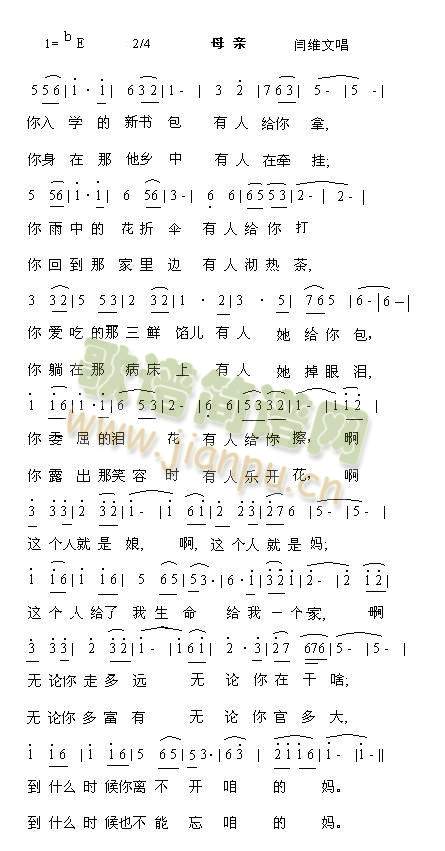 1= ♭E 2/4 母亲 闫维文唱
5 56|1· 1|6 32|1 -| 3 2|7 63|5 -|5 -|
你入学的新书包 有人给你拿,
你身在那他乡中 有人在牵挂;
5 56|1·1|6 56|3 -|6 6|65 53|2 -|2 -|
你雨中的花折伞 有人给你打
你回到那家里边 有人沏热茶,
3 32|5 53|2 32|1 · 2|3 · 5|765|6 -|6 -|
你爱吃的那三鲜馅儿有人她给你包,
你躺在那病床上有人她掉眼泪,
1 16|1·1|6 53|2 -|6 6|53 32|1 -|1 12|
你委屈的泪花 有人给你擦, 啊
你露出那笑容时 有人乐开花, 啊
3 33|2 32|1 -|1 61|2 2·3|27 6|5 -|5 -|
这个人就是娘, 啊, 这个人就是妈;
1 16|1 16|5 65|53·|6·1|32 1|2 -|2 12|
这个人给了我生命 给我一个家, 啊
3 33|2 32|1 -|1 61|2 · 3|27 676|5 -|5 -|
无论你走多远 无论你在干啥;
无论你多富有 无论你官多大,
1 16|1 16|5 65|53·|63|2116|1 -|1 -||
到什么时候你离不开咱的妈。
到什么时候也不能忘咱的妈。
歌谱简谱网
www.jianpu.cn